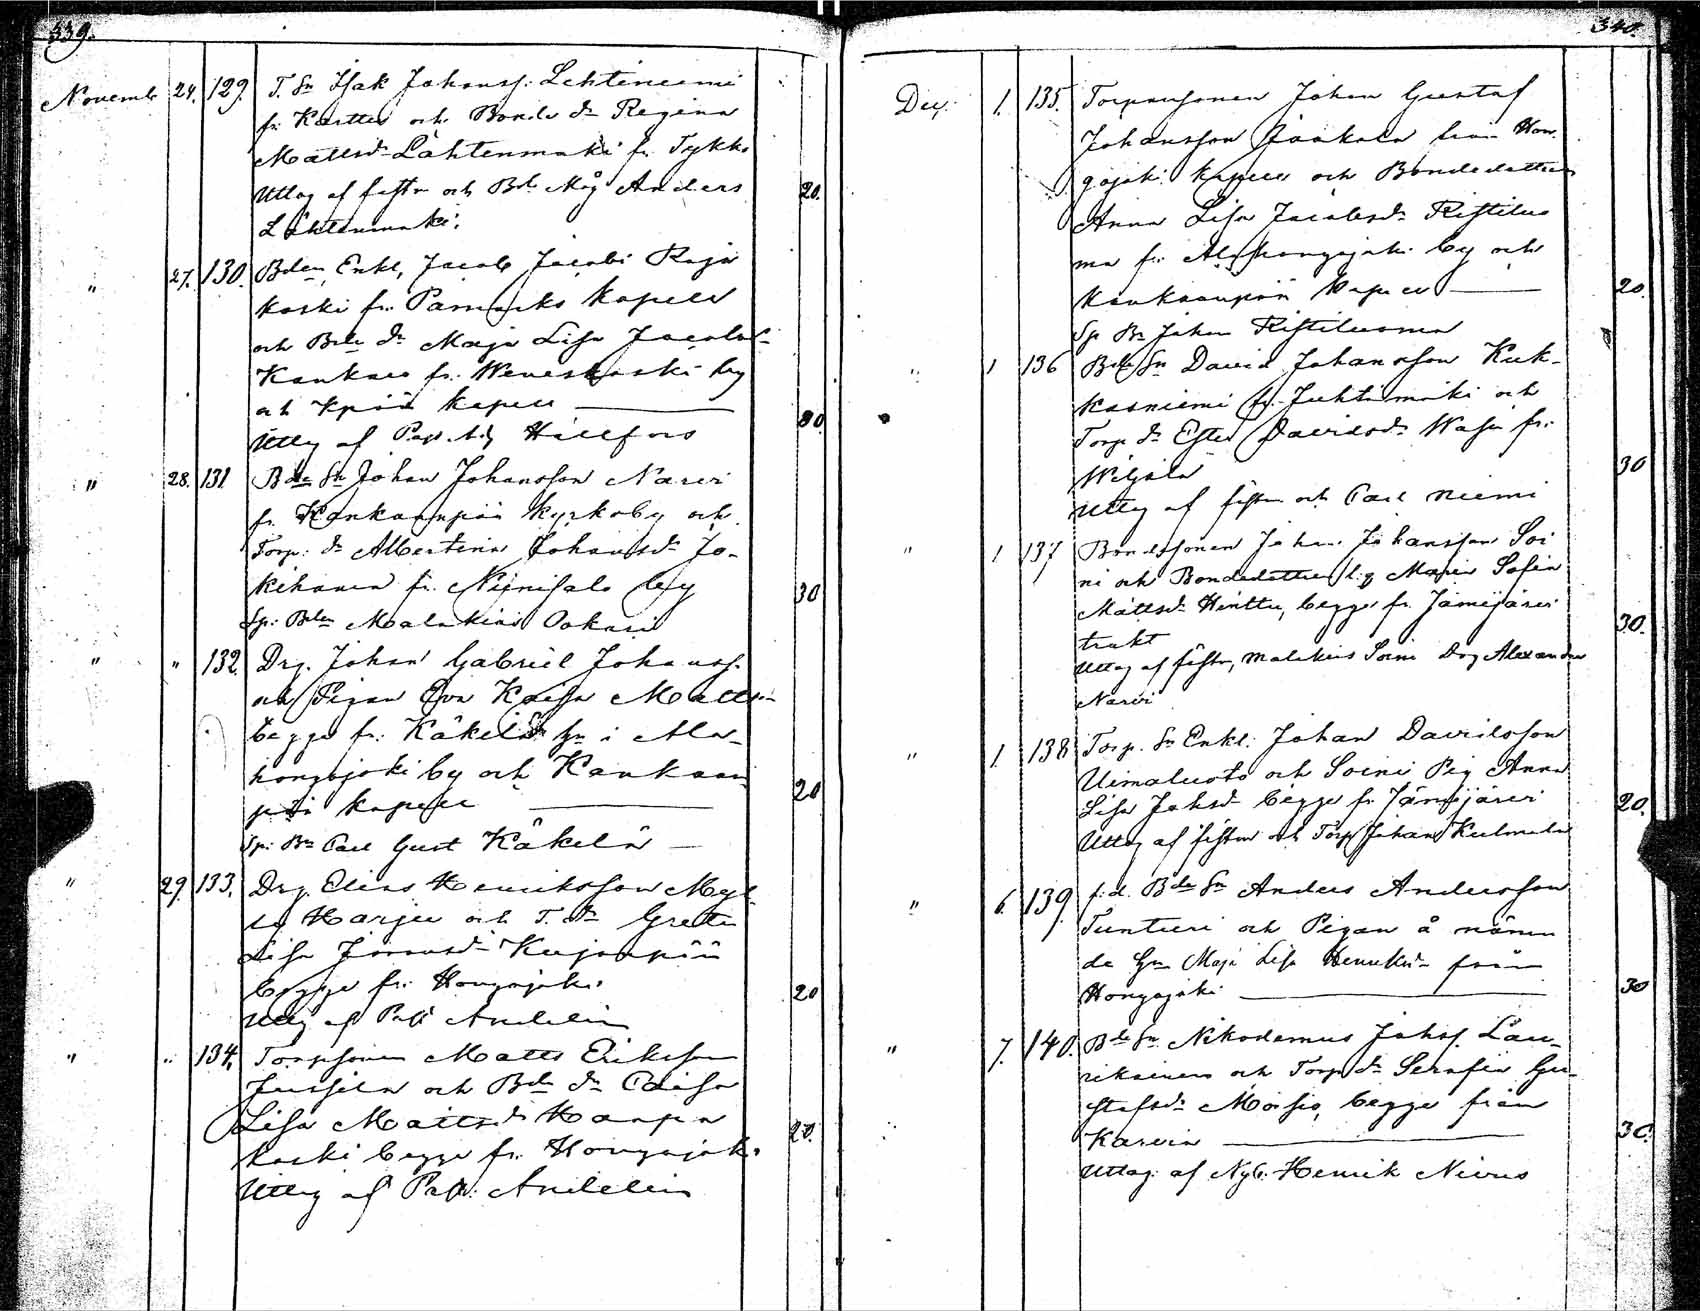 339.
Novemb. 24. 129. T. Sn Isak Johanss. Lehtiniemi
fr. Karttu och Bonde dr Regina
Mattsdr Lähtenmäki fr. Tykko
Uttag af fästm och Bde Måg Anders 20.
Lähtenmäki.
" 27. 130. Bden Enkl. Jacob Jacobs Raja
koski fr. Påmarks Kapell
och Bde dr Maja Lisa Jacobsd
Kankare fr. Weneskoski by
och Kpää kapell 30
Uttag af Past. Adj Hällfors
" 28. 131. Bde Sn Johan Johansson Narvi
fr. Kankaanpää kyrkoby och
Torp. dr Albertina Johansdr Jo-
kihanen fr. Niinisalo by 30
Sp. Bden Malakias Oakari
" " 132. Drg. Johan Gabriel Johanss.
och Pigan Eva Kaisa Mattsd
begge fr. Käkelä Gn i Ala-
hongojoki by och Kankaan
pää kapell 20
Sp. Bn Carl Gust Käkelä
" 29. 133. Drg. Elias Henriksson Myl-
ly Harju och T. dr Greta
Lisa Joonasdr Kujanpää
begge fr. Hongojoki 20
Uttag af Past Andelin
" " 134. Torpsonen Matts Eriksson
Jussila och Bde dr Caisa
Lisa Mattsdr Haapa
koski begge fr. Hongojoki 20.
Uttag af Past. Andelin
340.
Dec. 1. 135. Torparesonen Johan Gustaf
Johansson Jaakola från Hon-
gojoki kapell och Bondedottren
Anna Lisa Jacobsdr Ristiluo
ma fr. Alahongojoki by och
Kankaanpää kapell 20.
Sp Bn Johan Ristiluoma
" 1 136 Bde Sn David Johansson Kuk-
kasniemi fr. Juhtimäki och
Torp dr Ester Davidsdr Wasu fr.
Weljala 30
Uttag af fästm och Carl Niemi
" 1 137 Bondesonen Johan Johansson Soi
ni och Bondedottren Maria Sofia
Mattsdr Hinttu, begge fr. Jämijärvi
trakt 30.
Uttag af fästm, Malakias Soini Drg Alexander
Narvi
" 1. 138 Torp. Sn Enkl. Johan Davidsson
Uimaluoto och Soini Pig Anna
Lisa Johsdr begge fr. Jämijärvi 20.
Uttag af fästm och Torp Johan Kulmala
" 6. 139. f.d. Bde Sn Anders Andersson
Tunturi och Pigan å nämn
de Gn Maja Lisa Henriksdr från
Hongojoki 30
" 7. 140. Bde Sn Nikodemus Johss. Lau-
rikainen och Torp dr Serafia Gu-
stafsdr Moisio, begge från
Karvia 30.
Uttag. af Nyb. Henrik Nivus